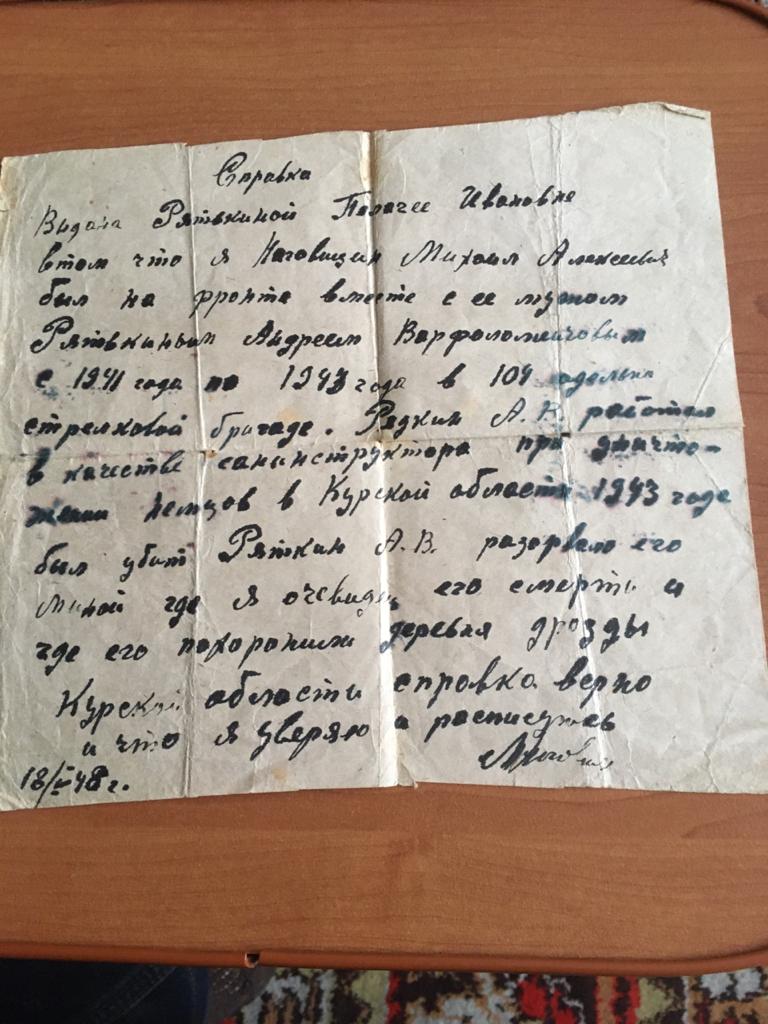 Справка
Выдана Рятькиной Пелагее Ивановне
втом что я Наговицин Михаил Алексеевич
был на фронте вместе с ее мужом
Рятькиным Андреем Варфоломеичовым
с 1941 года по 1943 года в 104 одельна
стрелковой бригаде. Редкин А.В. работал
в качестве санинструктора при уничто-
жении немцов в Курской области 1943 годе
был убит Ряткин А.В. разорвало его
миной где я очевидец его смерти и
где его похоронили деревня дрозды
Курской области справка верно
и что я уверяю и расписуюсь
18/ 48 г.